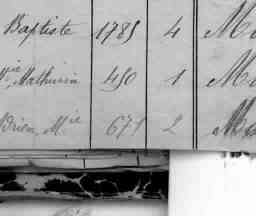 Baptiste 1785 4 M
ie Mathurin 450 1 M
Brien, Mie 675 2 M